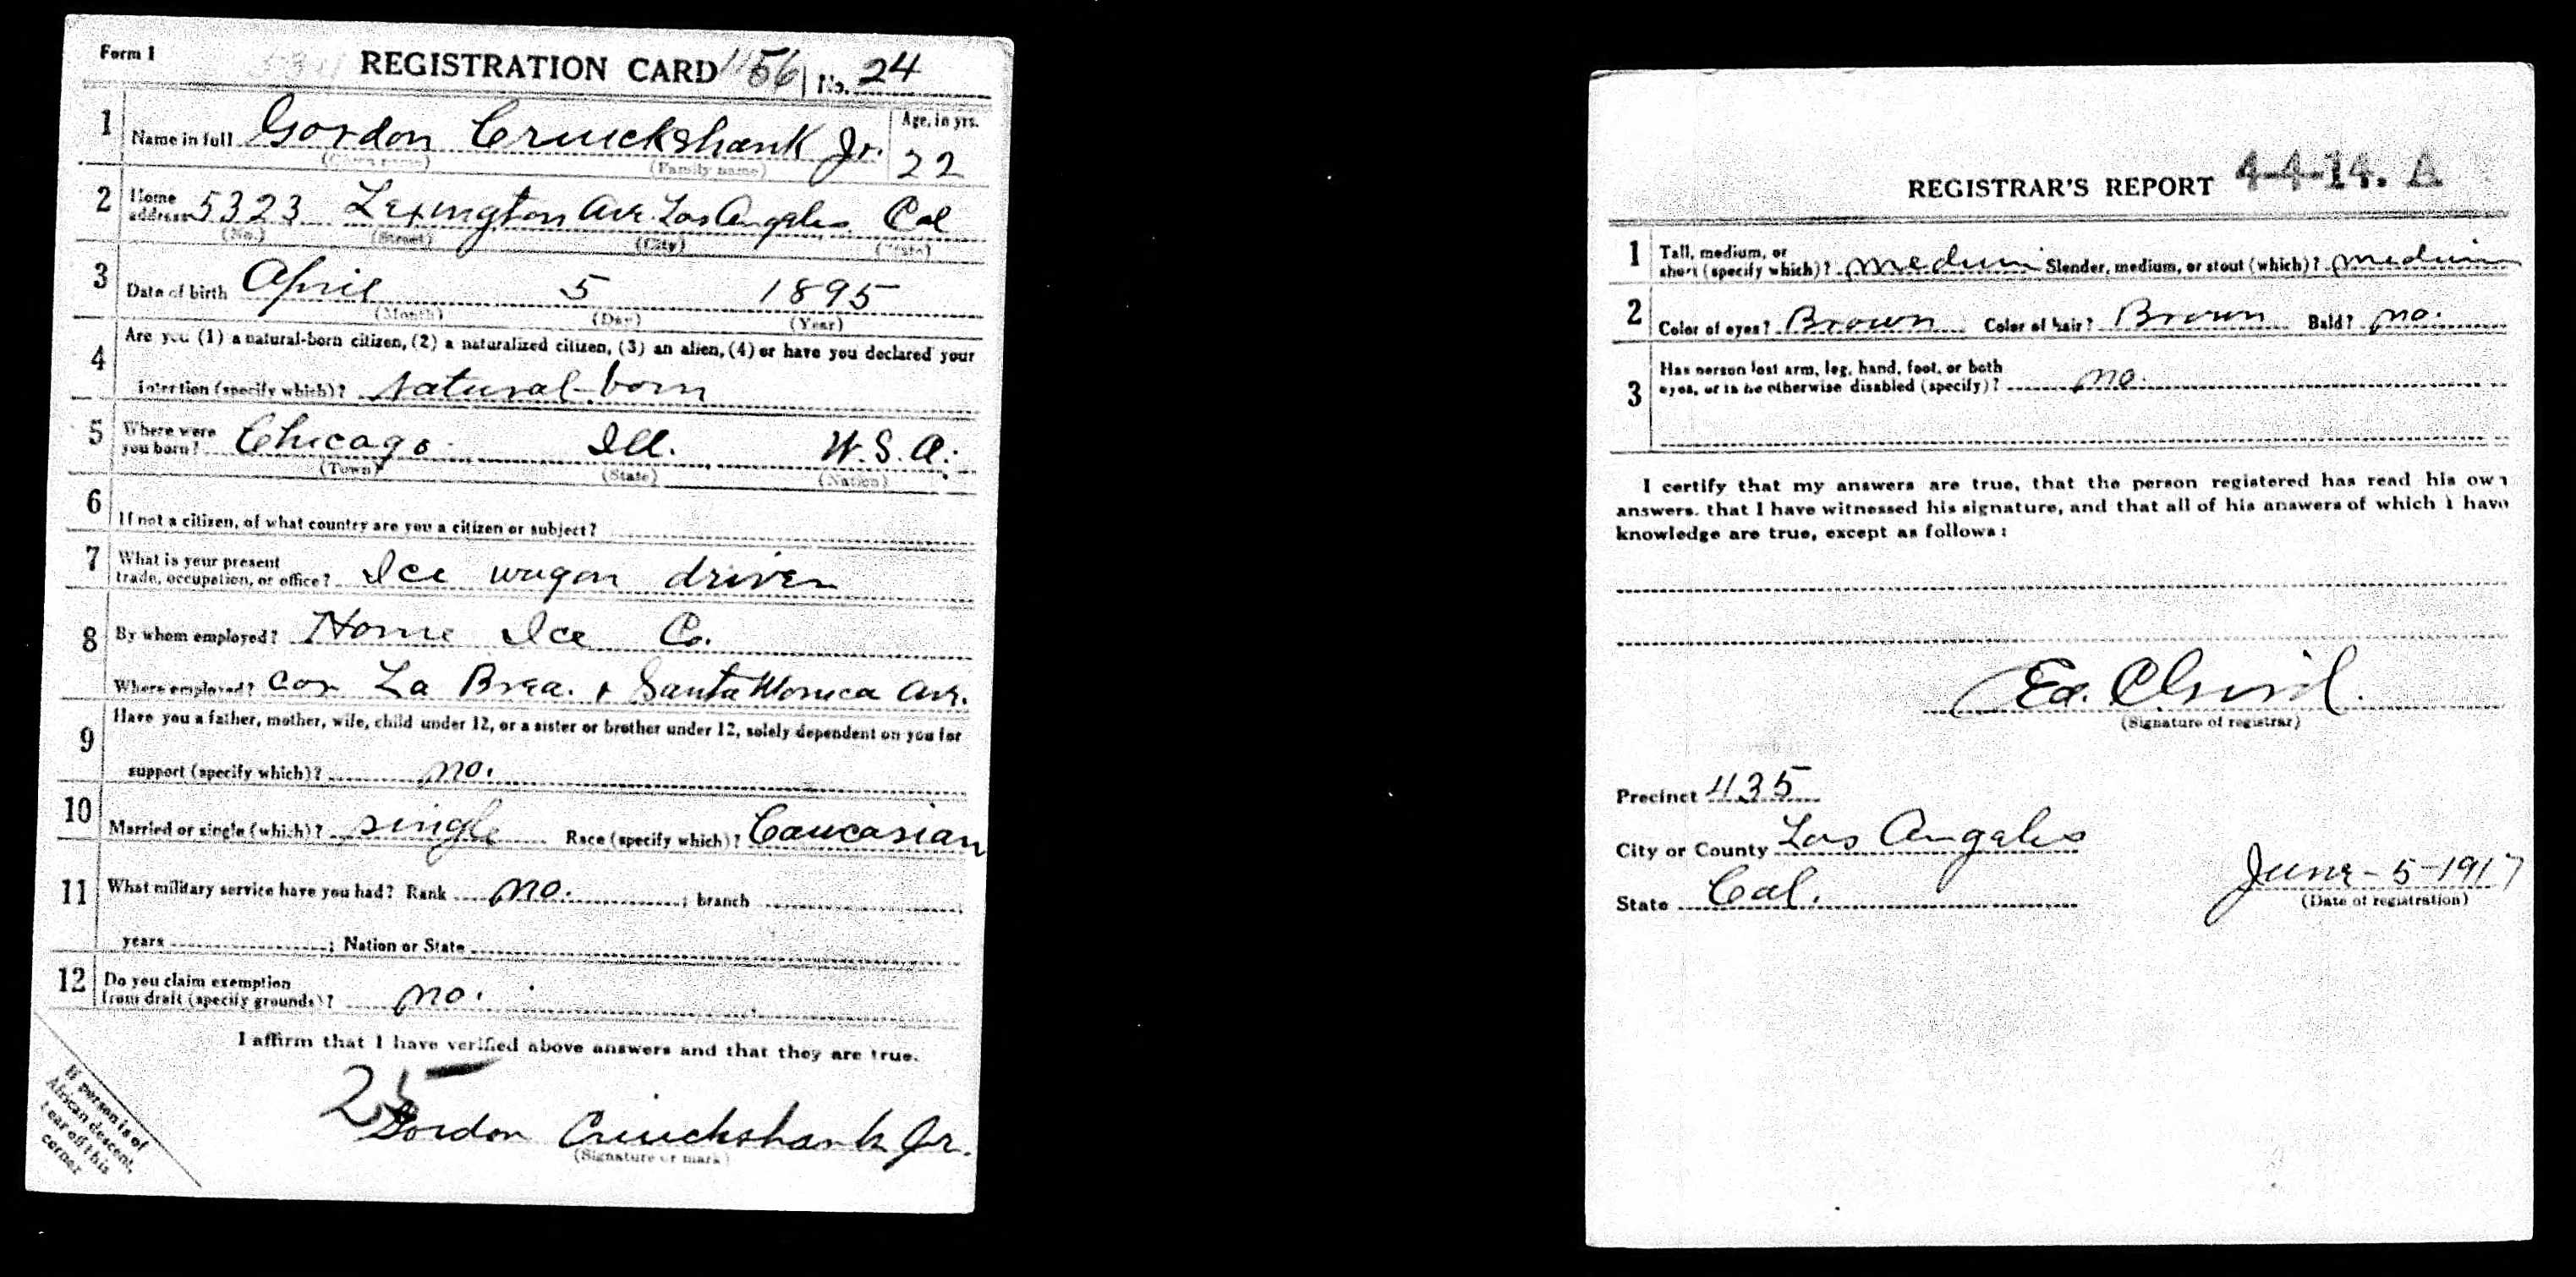 Form 1
REGISTRATION CARD 1156 No. 24
1 Name in full Gordon Cruickshank Jr. Age, in yrs.
(Given name) (Family name) 22
2 Home address 5323 Lexington Ave. Los Angeles Cal
(No.) (Street) (City) (State)
3 Date of birth April 5 1895
(Month) (Day) (Year)
4 Are you (1) a natural-born citizen, (2) a naturalized citizen, (3) an alien, (4) or have you declared your
intention (specify which)? Natural-born
5 Where were you born? Chicago Ill. U.S.A.
(Town) (State) (Nation)
6 If not a citizen, of what country are you a citizen or subject?
7 What is your present
trade, occupation, or office? Ice wagon driver
8 By whom employed? Home Ice Co.
Where employed? Cor La Brea. + Santa Monica Ave.
9 Have you a father, mother, wife, child under 12, or a sister or brother under 12, solely dependent on you for
support (specify which)? no.
10 Married or single (which)? single Race (specify which)? Caucasian
11 What military service have you had? Rank no. ; branch
years ; Nation or State
12 Do you claim exemption
from draft (specify grounds)? no.
I affirm that I have verified above answers and that they are true.
25
Gordon Cruickshank Jr.
(Signature or mark)
If person is of
African descent,
tear off this
corner
REGISTRAR'S REPORT 4-4-14. A
1 Tall, medium, or
short (specify which)? medium Slender, medium, or stout (which)? medium
2 Color of eyes? Brown Color of hair? Brown Bald? no.
3 Has person lost arm, leg, hand, foot, or both
eyes, or is he otherwise disabled (specify)? no.
I certify that my answers are true, that the person registered has read his own
answers, that I have witnessed his signature, and that all of his answers of which I have
knowledge are true, except as follows:
Ed.
(Signature of registrar)
Precinct 435
City or County Los Angeles
State Cal. June-5-1917
(Date of registration)